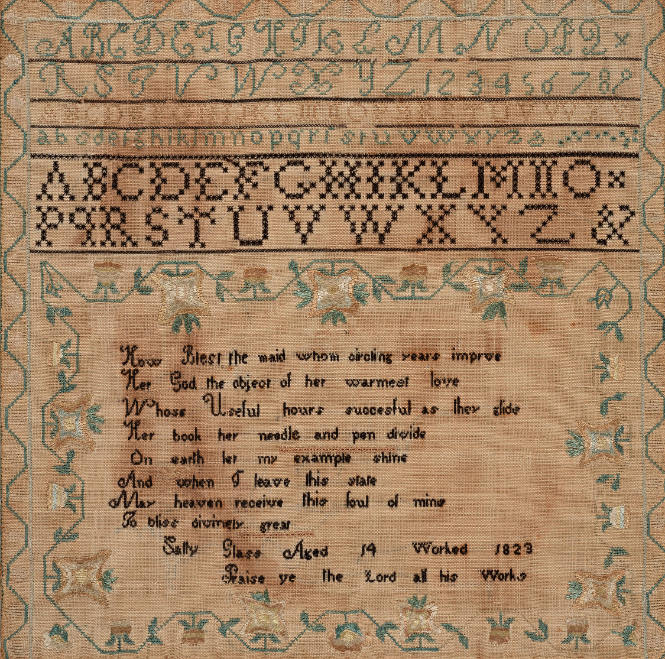 A B C D E F G H I K L M N O P Q ×
R S T V W X Y Z 1 2 3 4 5 6 7 8 9
a b c d e f g h i k l m n o p q r f s t u v w x y z &
A B C D E F G H I K L M N O ×
P Q R S T U V W X Y Z &
How Blest the maid whom circling years improve
Her God the object of her warmest love
Whose Useful hours succesful as they glide
Her book her needle and pen divide
On earth let my example shine
And when I leave this state
May heaven receive this soul of mine
To bliss divinely great
Sally Glass Aged 14 Worked 1823
Praise ye the Lord all his Works